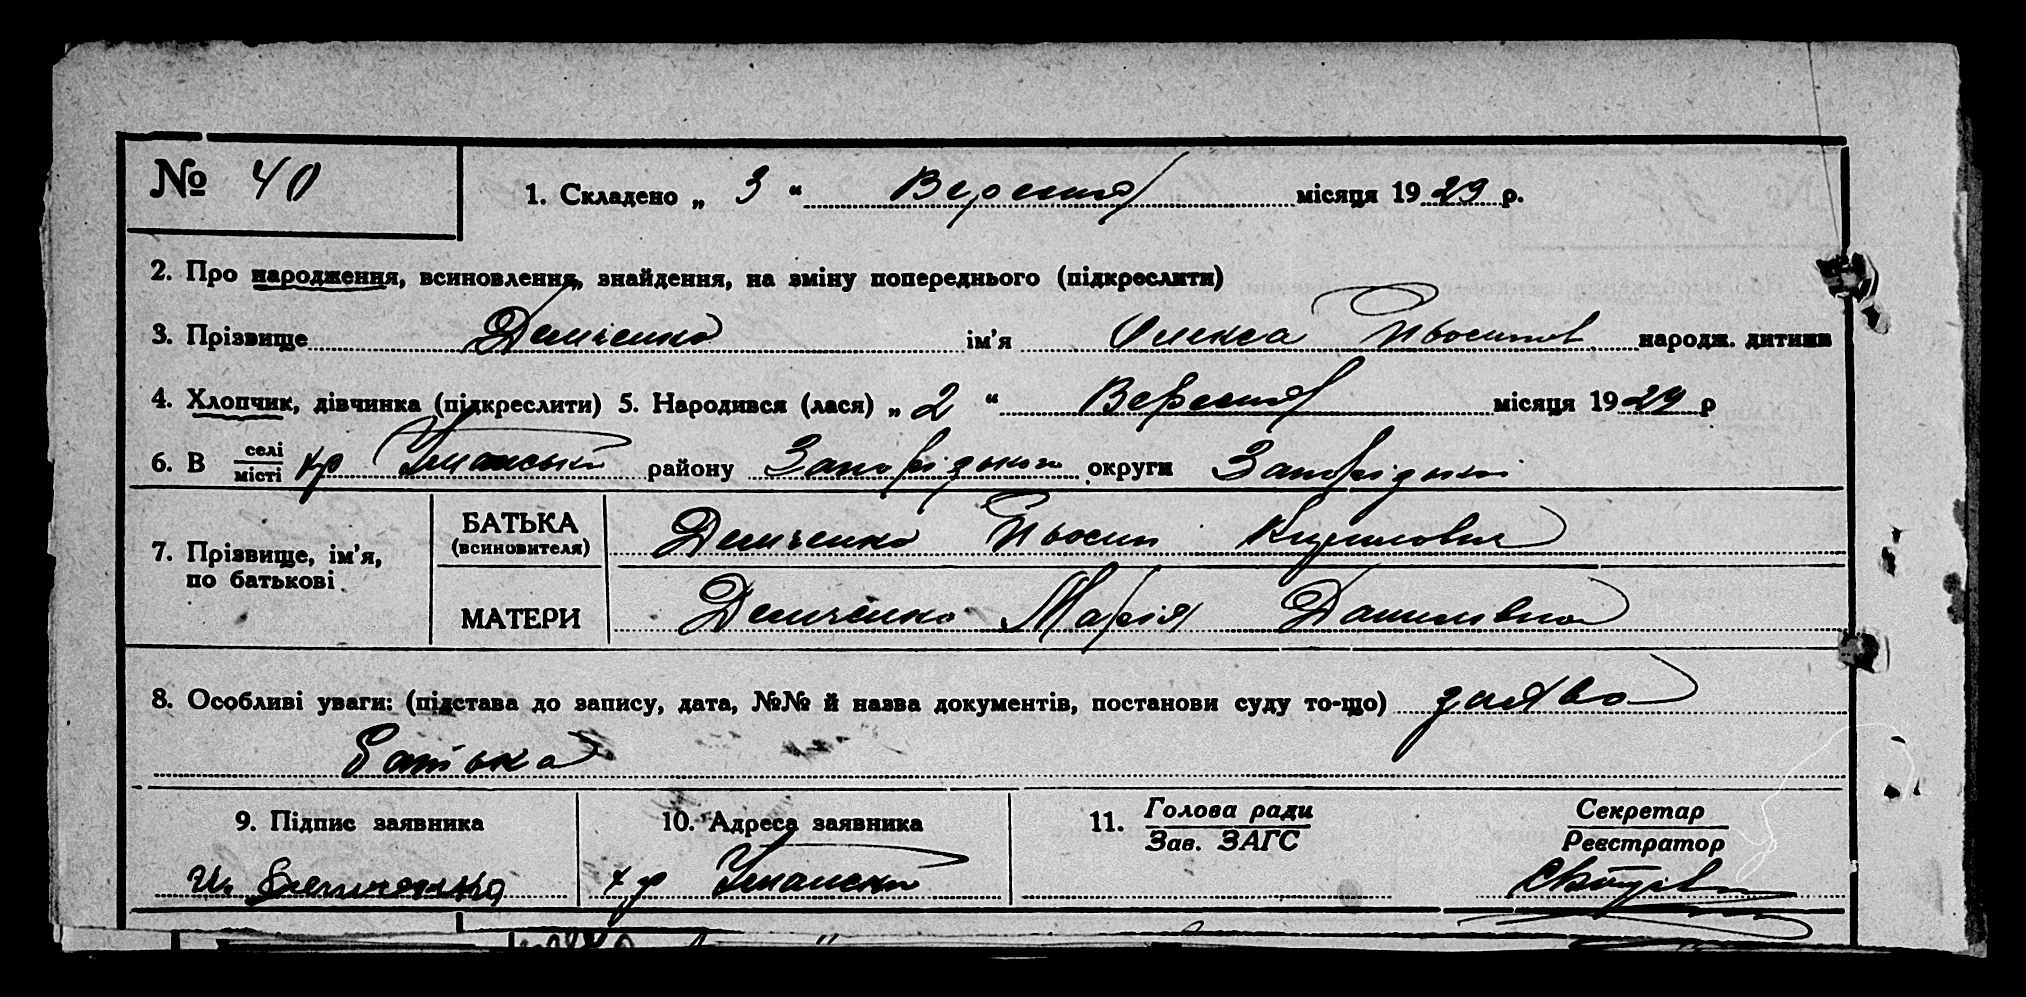 № 40
1. Складено „ 3 “ Вересня місяця 1929 р.
2. Про народження, всиновлення, знайдення, на зміну попереднього (підкреслити)
3. Прізвище Демченко ім'я Олекса народж. дитини
4. Хлопчик, дівчинка (підкреслити) 5. Народився (лася) „ 2 “ Вересня місяця 1929 р
6. В селі місті хр Уманський району Запорізького округи Запорізької
7. Прізвище, ім'я, по батькові
БАТЬКА (всиновителя) Демченко Йвосип Кирилович
МАТЕРИ Демченко Марія Данилівна
8. Особливі уваги: (підстава до запису, дата, №№ й назва документів, постанови суду то-що) заява
Батька
9. Підпис заявника 10. Адреса заявника 11. Голова ради Зав. ЗАГС Секретар Реєстратор
Демченко хр